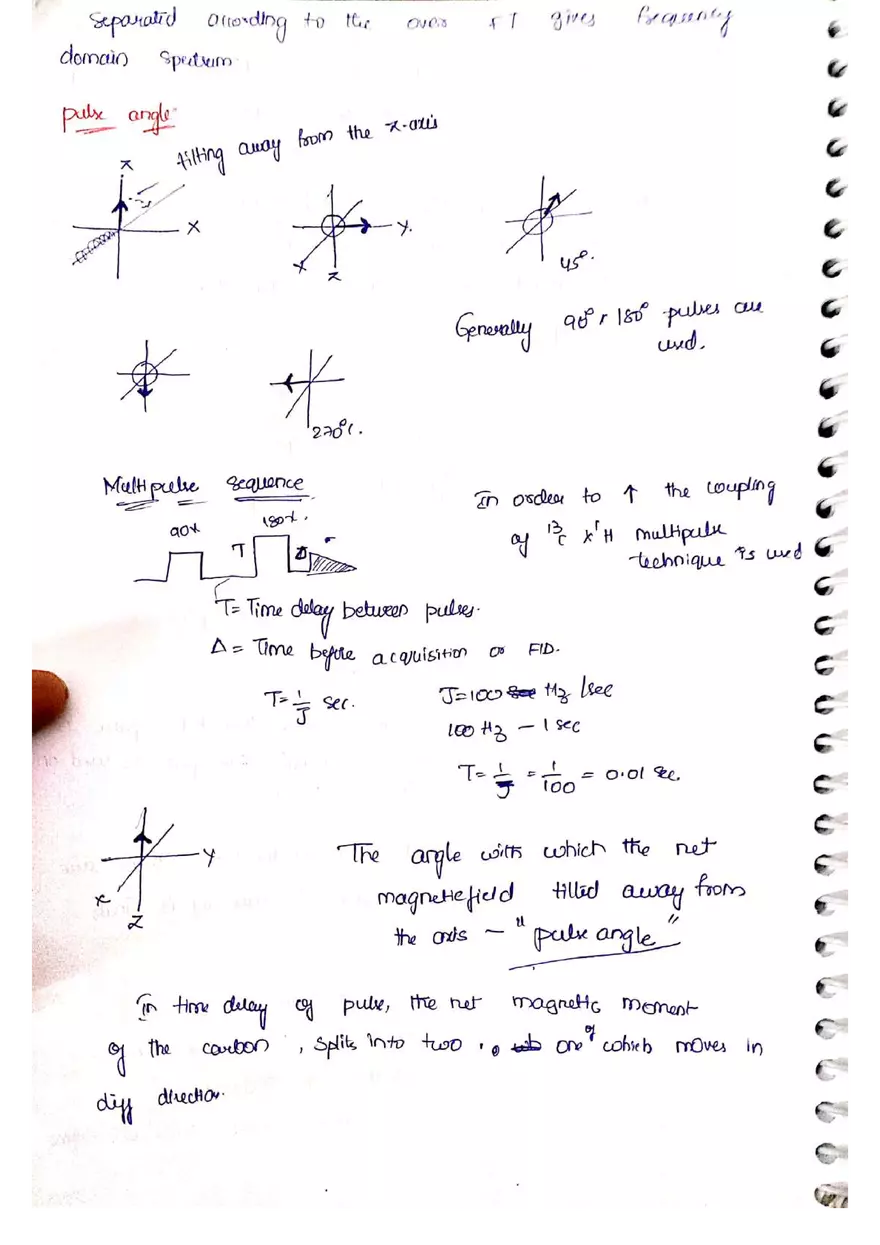 Separated according to the over FT gives frequency
domain Spectrum
pulse angle:
tilting away from the z-axis
z
X
Y.
X
z
45°.
Generally 90° r 180° pulses are
used.
270°.
Multipulse Sequence
90x
180x.
T
Δ
In order to ↑ the coupling
of 13C x 1H multipulse
technique is used
T= Time delay between pulses.
Δ = Time before acquisition or FID.
T= 1/J sec.
J=100 Hz /sec
100 Hz – 1 sec
T= 1/J = 1/100 = 0.01 sec.
Y
x
Z
The angle with which the net
magnetic field tilled away from
the axis – "pulse angle"
In time delay of pulse, the net magnetic moment
of the carbon, splits into two, one of which moves in
diff direction.